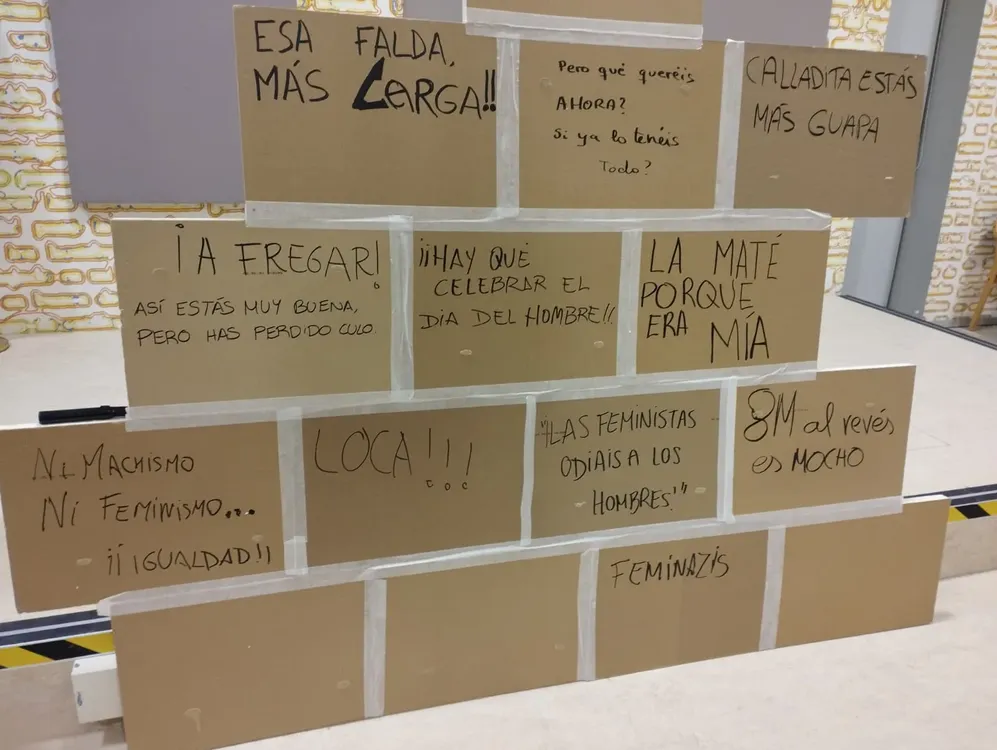 ESA FALDA,
MÁS LARGA!!
Pero qué queréis
AHORA?
Si ya lo tenéis
Todo?
CALLADITA ESTÁS
MÁS GUAPA
¡A FREGAR!
ASÍ ESTÁS MUY BUENA,
PERO HAS PERDIDO CULO.
¡¡HAY QUE
CELEBRAR EL
DÍA DEL HOMBRE!!
LA MATÉ
PORQUE
ERA
MÍA
NI MACHISMO
NI FEMINISMO...
¡¡IGUALDAD!!
LOCA!!!
"LAS FEMINISTAS
ODIAIS A LOS
HOMBRES!"
8M al revés
es MOCHO
FEMINAZIS